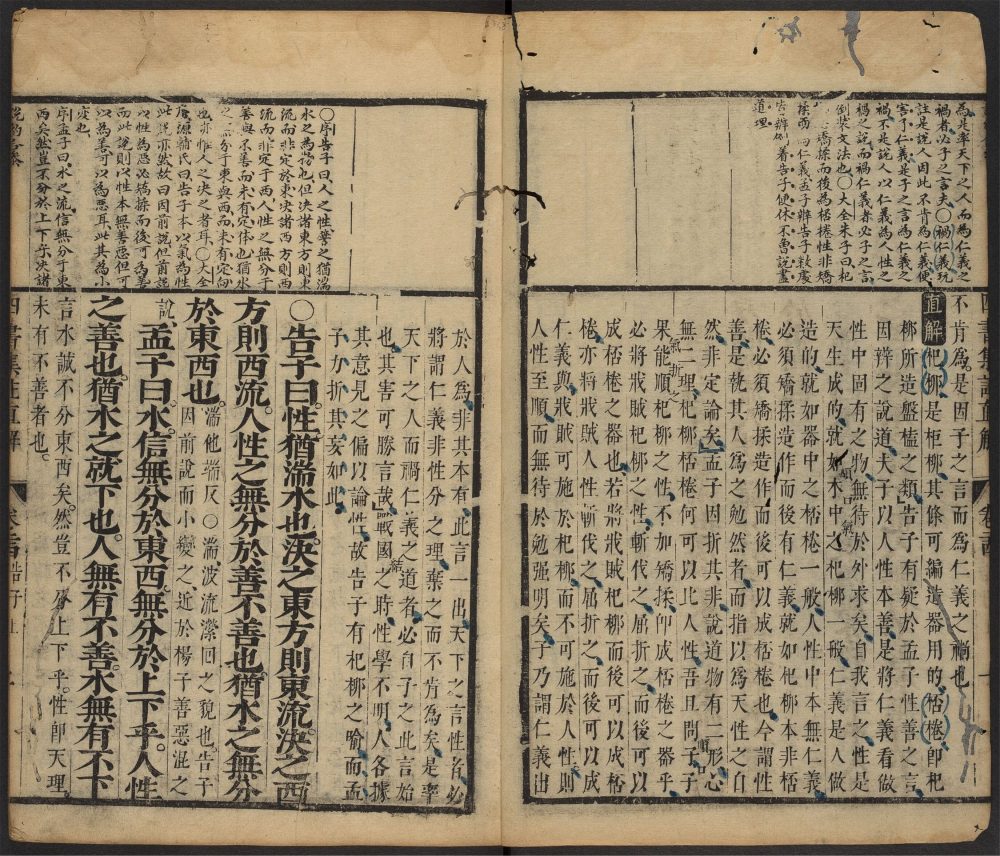 為是率天下之人而為仁義之
禍者必子之言夫〇禍仁義玩
註是說人因此不肯為仁義便
害了仁義是子之言為仁義之
禍不是說人以仁義為人性之
禍之說而禍仁義者必子之言
倒裝文法也〇大全朱子曰杞
柳必矯揉而後為桮棬性非矯
揉而為仁義孟子辨告子數處
皆辨倒著告子便休不曾說盡
道理
不肯為是因子之言而為仁義之禍也
直解杞柳是柜柳其條可編造器用的桮棬卽杞
柳所造盤榼之類告子有疑於孟子性善之言
因辨之說道夫子以人性本善是將仁義看做
性中固有之物無待於外求矣自我言之性是
天生成的就如木中之杞柳一般仁義是人做
造的就如器中之桮棬一般人性中本無仁義
必須矯揉造作而後有仁義就如杞柳本非桮
棬必須矯揉造作而後可以成桮棬也今謂性
善是執其人為之勉然者而指以為天性之自
然非定論矣孟子因折其非說道物有二形心
無二理杞柳桮棬何可以比人性吾且問子子
果能順杞柳之性不加矯揉卽成桮棬之器乎
必將戕賊杞柳之性斬伐之屈折之而後可以
成桮棬之器也若將戕賊杞柳而後可以成桮
棬亦將戕賊人性斬伐之屈折之而後可以成
仁義與戕賊可施於杞柳而不可施於人性則
人性至順而無待於勉强明矣子乃謂仁義出
〇序告子曰人之性譬之猶湍
水之為物也但決諸東方則東
流而非定於東決諸西方則西
流而非定于西人性之無分于
善與不善而未有定体也猶水
之無分于東與西而未有定向
也亦惟人之決之者耳〇大全
慶源輔氏曰告子本以氣為性
此說亦然故曰因前說但前說
以性為惡必矯揉而後可為善
而此說則以性本無善惡但可
以為善可以為惡耳此其為小
變也
序孟子曰水之流信無分于東
西矣然豈不分於上下乎決諸
於人為非其本有此言一出天下之言性者必
將謂仁義非性分之理棄之而不肯為矣是率
天下之人而禍仁義之道者必自子之此言始
也其害可勝言哉戰國之時性學不明人各據
其意見之偏以論性故告子有杞柳之喻而孟
子力折其妄如此
〇告子曰性猶湍水也決之東方則東流決之西
方則西流人性之無分於善不善也猶水之無分
於東西也湍他端反〇湍波流瀠回之貌也告子
因前說而小變之近於楊子善惡混之
說
孟子曰水信無分於東西無分於上下乎人性
之善也猶水之就下也人無有不善水無有不下
言水誠不分東西矣然豈不分上下乎性卽天理
未有不善者也
四書集註直解